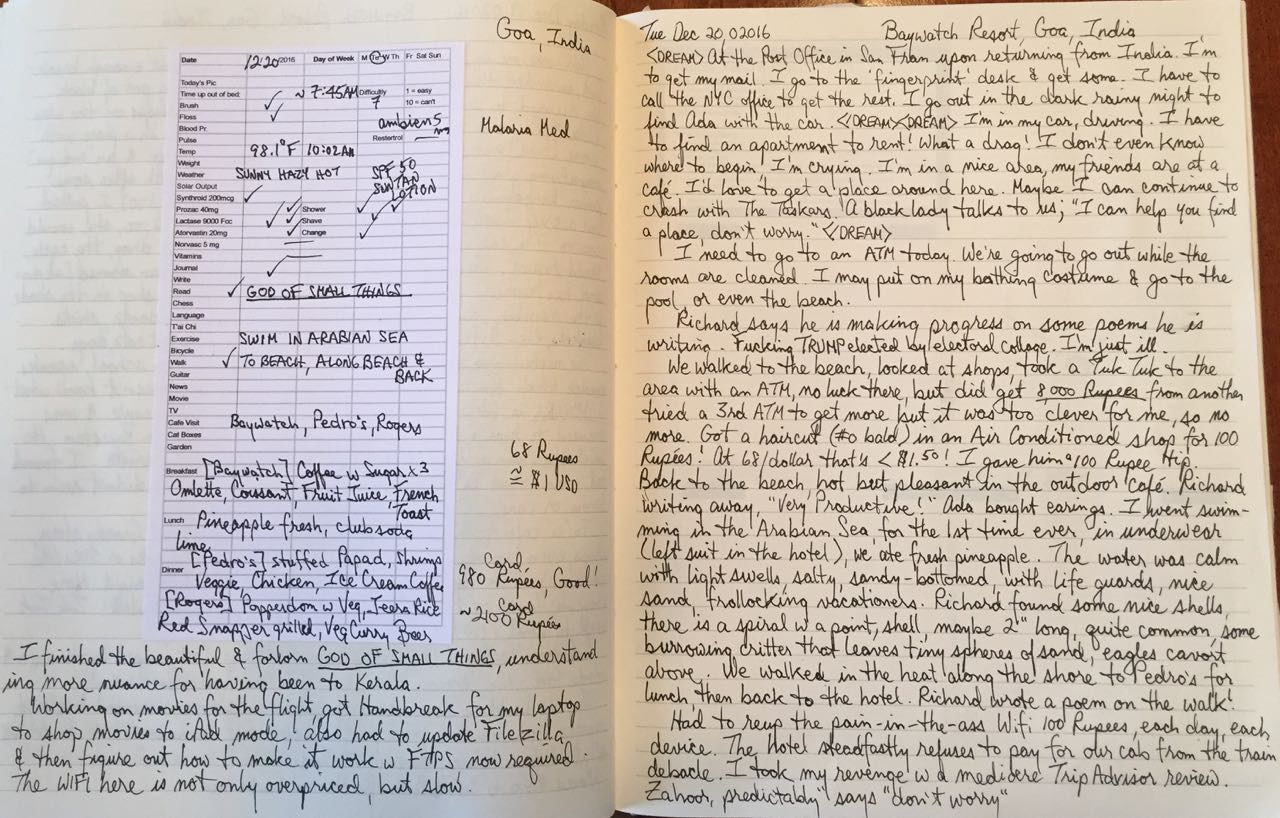 Goa, India
Date 12/20/2016 Day of Week M Tu W Th Fr Sat Sun
Today's Pic
Time up out of bed: ~7:45AM Difficulty 7 1 = easy
Brush 10 = can't
Floss
Blood Pr. ambien 5
Pulse Restertrol
Temp 98.1°F 10:02AM
Weight
Weather SUNNY HAZY HOT SPF 50
Solar Output SUNTAN
Synthroid 200mcg LOTION
Prozac 40mg Shower
Lactase 9000 Fcc Shave
Atorvastin 20mg Change
Norvasc 5 mg
Vitamins
Journal
Write
Read GOD OF SMALL THINGS
Chess
Language
T'ai Chi
Exercise SWIM IN ARABIAN SEA
Bicycle
Walk TO BEACH, ALONG BEACH &
Guitar BACK
News
Movie
TV
Cafe Visit Baywatch, Pedro's, Rogers
Cat Boxes
Garden
Breakfast [Baywatch] Coffee w Sugar x3
Omlette, Coussant, Fruit Juice, French
Toast
Lunch Pineapple fresh, club soda
lime
[Pedro's] stuffed Papad, Shrimp
Dinner Veggie, Chicken, Ice Cream Coffee
[Rogers] Popperdom w Veg, Jeera Rice
Red Snapper grilled, Veg Curry Beer
Malaria Med
68 Rupees
≅ $1 USD
Card
980 Rupees, Good!
Card
~2100 Rupees
I finished the beautiful & forlorn GOD OF SMALL THINGS, understand
ing more nuance for having been to Kerala.
Working on movies for the flight, got Handbreak for my laptop
to shop movies to iPad mode, also had to update Filelzilla
& then figure out how to make it work w FTPS now required.
The WIFI here is not only overpriced, but slow.
Tue Dec 20, 02016 Baywatch Resort, Goa, India
<DREAM> At the Post Office in San Fran upon returning from India. I'm
to get my mail. I go to the 'fingerprint' desk & get some. I have to
call the NYC office to get the rest. I go out in the dark rainy night to
find Ada with the car. <DREAM><DREAM> I'm in my car, driving. I have
to find an apartment to rent! What a drag! I don't even know
where to begin. I'm crying. I'm in a nice area, my friends are at a
café. I'd love to get a place around here. Maybe I can continue to
crash with The Taskars. A black lady talks to us; "I can help you find
a place, don't worry." <DREAM>
I need to go to an ATM today. We're going to go out while the
rooms are cleaned. I may put on my bathing costume & go to the
pool, or even the beach.
Richard says he is making progress on some poems he is
writing. Fucking TRUMP elected by electoral college. I'm just ill.
We walked to the beach, looked at shops, took a Tuk Tuk to the
area with an ATM, no luck there, but did get 8000 Rupees from another
tried a 3rd ATM to get more but it was too clever for me, so no
more. Got a haircut (#0 bald) in an Air Conditioned shop for 100
Rupees! At 68/dollar that's < $1.50! I gave him a 100 Rupee tip.
Back to the beach, hot but pleasant in the outdoor café. Richard
writing away, "Very Productive!" Ada bought earings. I went swim-
ming in the Arabian Sea, for the 1st time ever, in underwear
(left suit in the hotel), we ate fresh pineapple. The water was calm
with light swells, salty, sandy-bottomed, with life guards, nice
sand, frollocking vacationers. Richard found some nice shells,
there is a spiral w a point, shell, maybe 2" long, quite common, some
burrowing critter that leaves tiny spheres of sand, eagles cavort
above. We walked in the heat along the shore to Pedro's for
lunch, then back to the hotel. Richard wrote a poem on the walk!
Had to reup the pain-in-the-ass Wifi 100 Rupees, each day, each
device. The Hotel steadfastly refuses to pay for our cab from the train
debacle. I took my revenge w a mediocre Trip Advisor review.
Zahoor, predictably says "don't worry"